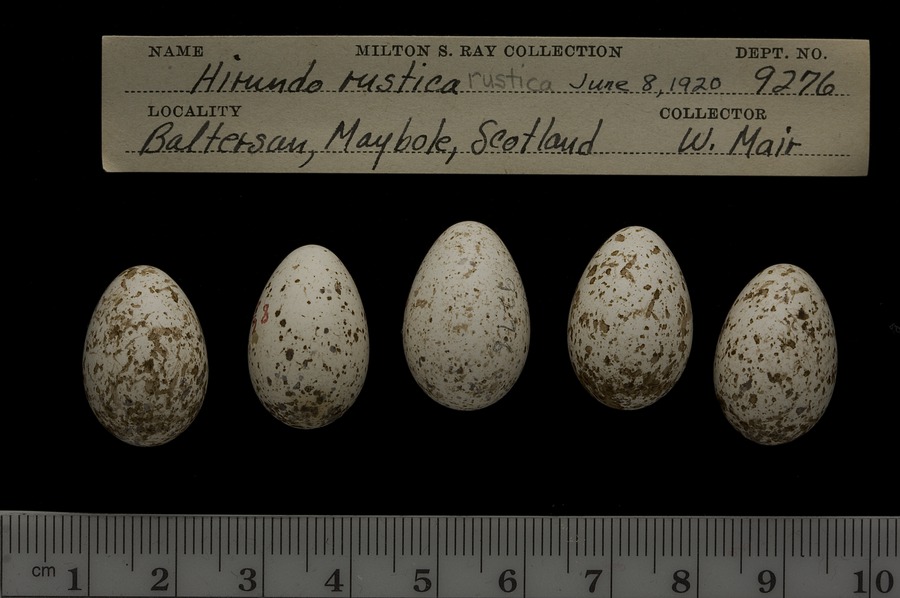 NAME MILTON S. RAY COLLECTION DEPT. NO.
Hirundo rustica rustica June 8, 1920 9276
LOCALITY COLLECTOR
Baltersan, Maybole, Scotland W. Mair
8
9276
cm 1 2 3 4 5 6 7 8 9 10